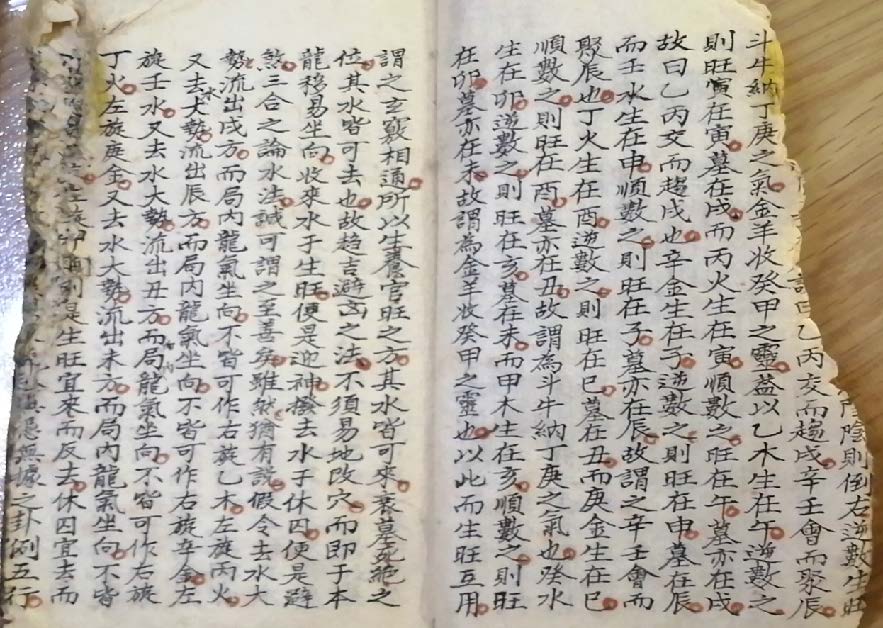 陰則倒右逆數生旺
曰乙丙交而趨戌辛壬會而聚辰
斗牛納丁庚之氣金羊收癸甲之靈益以乙木生在午逆數之
則旺寅在寅墓在戌而丙火生在寅順數之旺在午墓亦在戌
故曰乙丙交而趨戌也辛金生在子逆數之則旺在申墓在辰
而壬水生在申順數之則旺在子墓亦在辰故謂之辛壬會而
聚辰也丁火生在酉逆數之則旺在巳墓在丑而庚金生在巳
順數之則旺在酉墓亦在丑故謂為斗牛納丁庚之氣也癸水
生在卯逆數之則旺在亥墓在未而甲木生在亥順數之則旺
在卯墓亦在未故謂為金羊收癸甲之靈也以此而生旺互用
謂之玄竅相通所以生養官旺之方其水皆可來衰墓死絕之
位其水皆可去也故趨吉避凶之法不須易地改穴而即于本
龍移易坐向收來水于生旺便是迎神撥去水子休囚便是避
煞三合之論水法誠可謂之至善矣雖然猶有說假令去水大
勢流出戌方而局內龍氣坐向不皆可作右旋乙木左旋丙火
又去水大勢流出辰方而局內龍氣坐向不皆可作右旋辛金左
旋壬水又去水大勢流出丑方而局龍氣坐向不皆可作右旋
丁火左旋庚金又去水大勢流出未方而局內龍氣坐向不皆
生旺宜來而反去休囚宜去而
無據之卦例五行